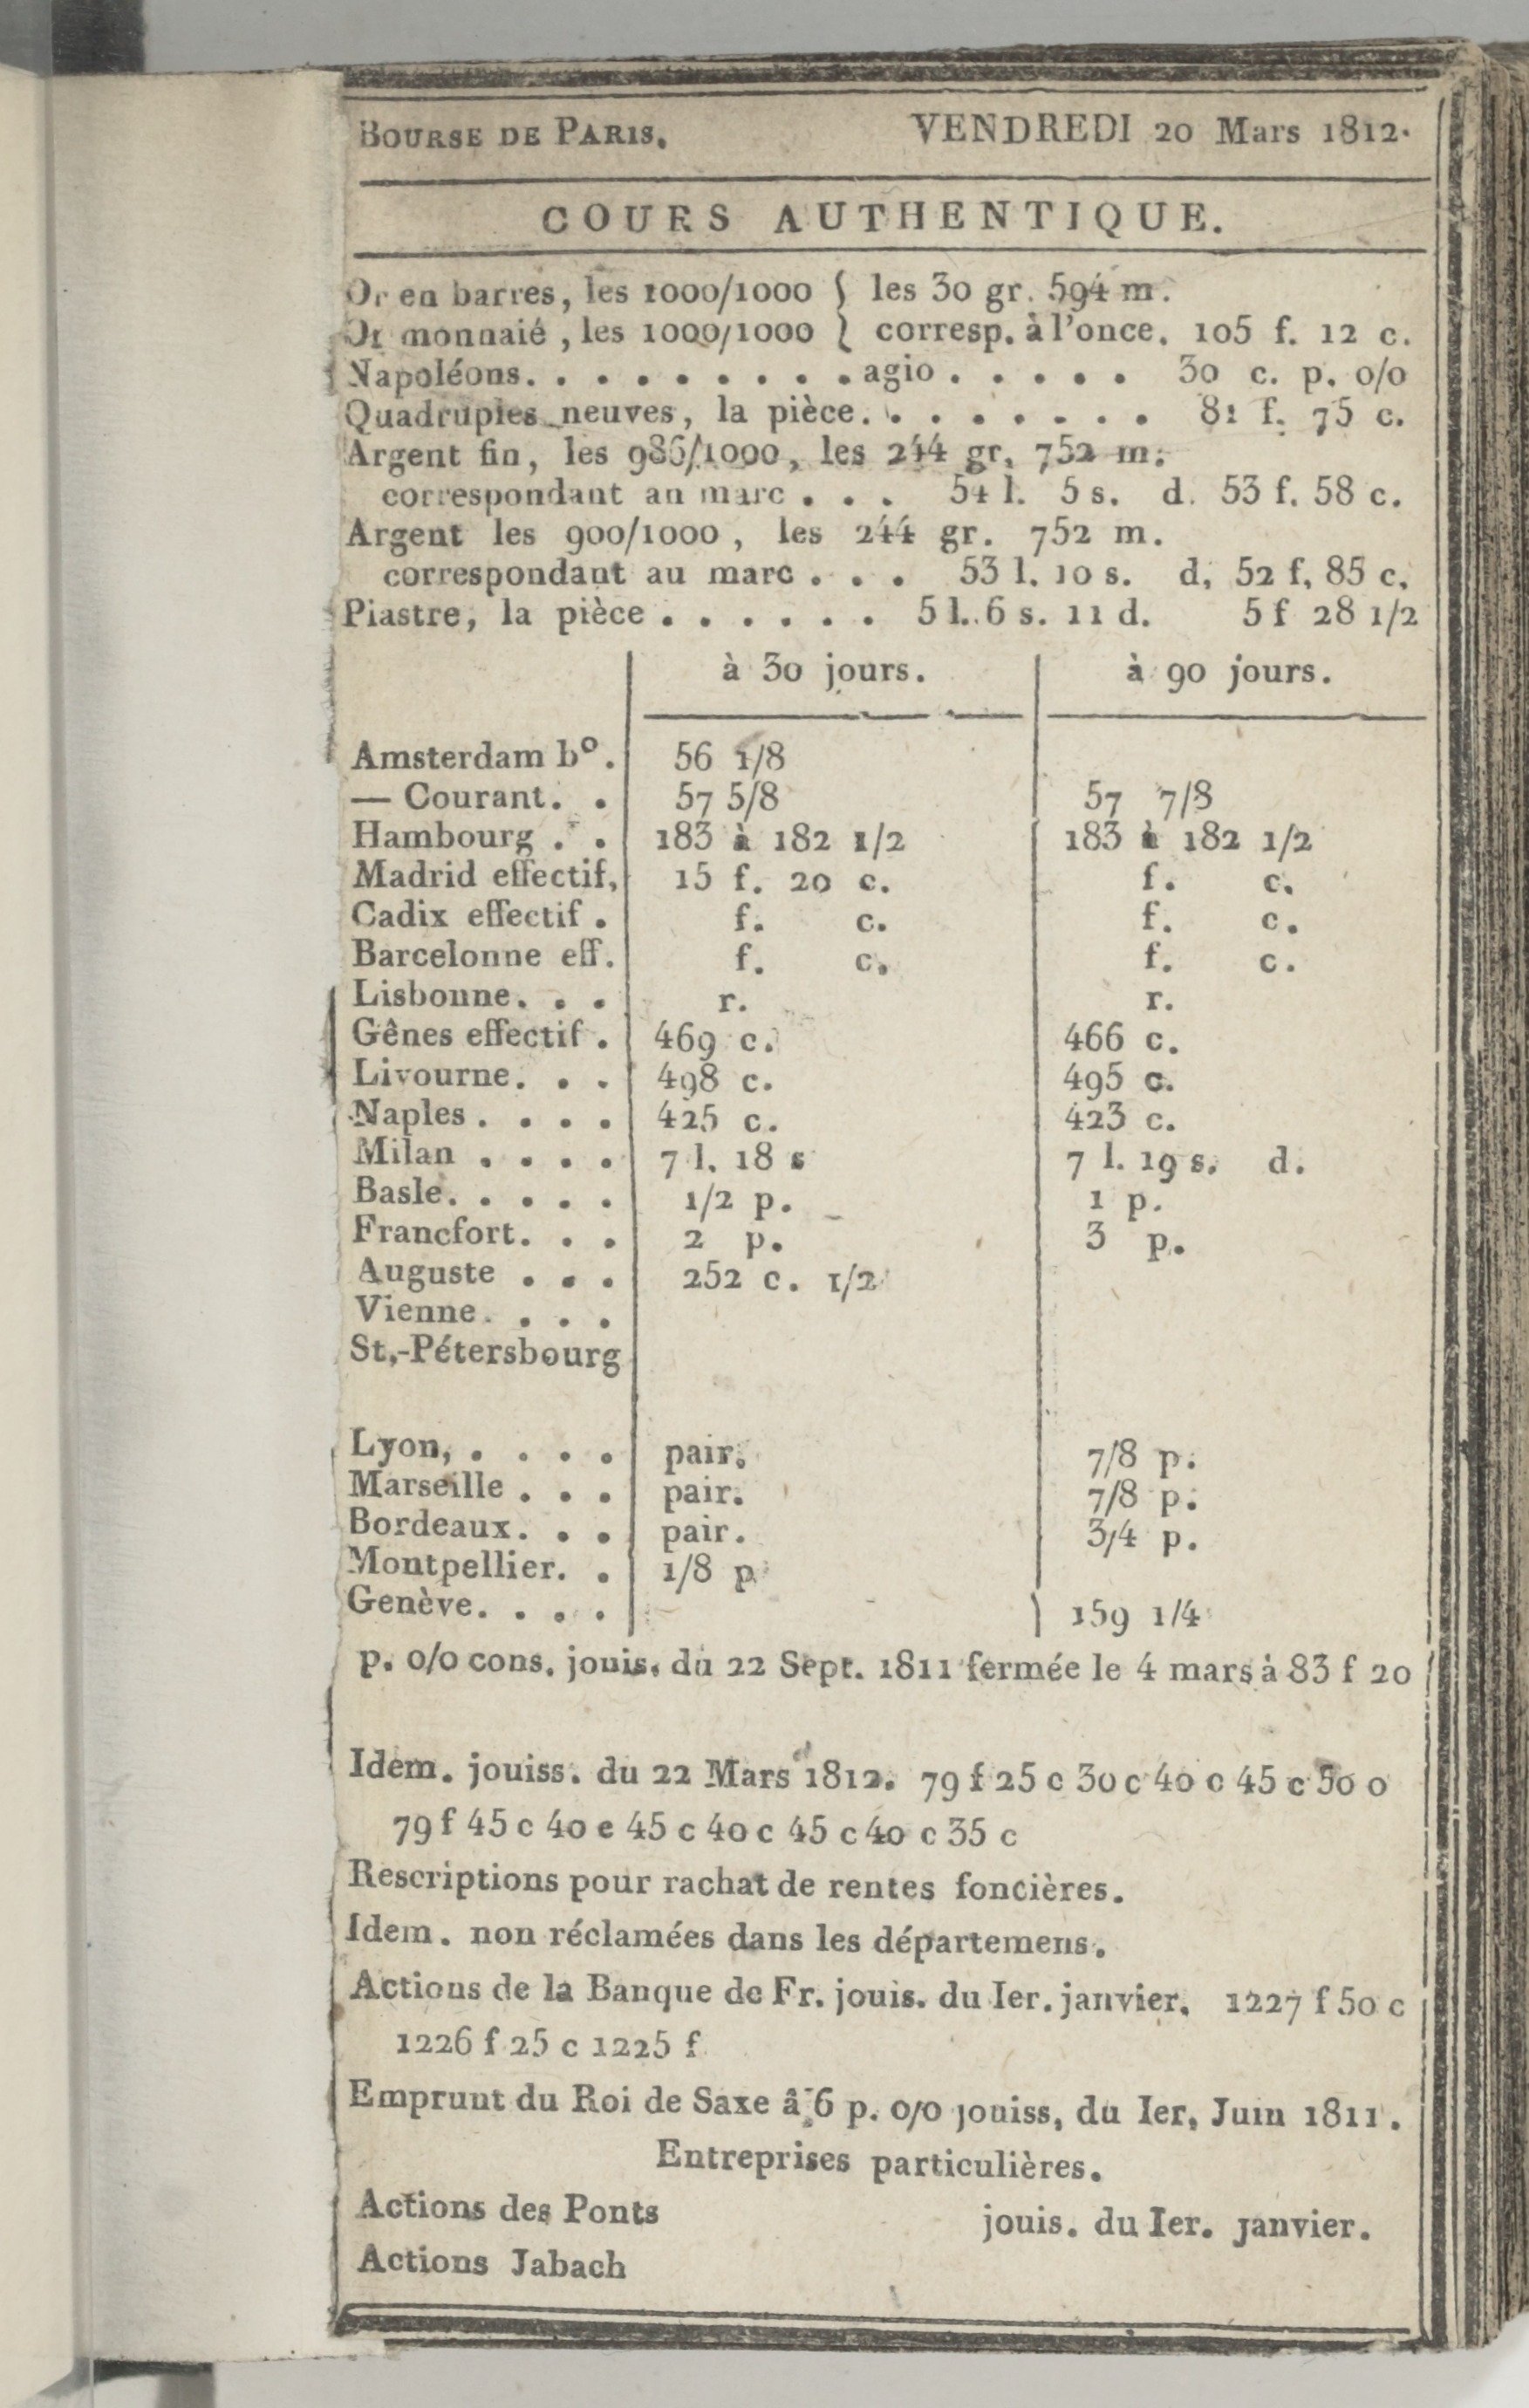 BOURSE DE PARIS. VENDREDI 20 Mars 1812.
COURS AUTHENTIQUE.
Or en barres, les 1000/1000 { les 30 gr. 594 m.
Or monnaié, les 1000/1000 { corresp. à l'once. 105 f. 12 c.
Napoléons. . . . . . . . . agio . . . . . 30 c. p. o/o
Quadruples neuves, la pièce. . . . . . . . 81 f. 75 c.
Argent fin, les 986/1000, les 244 gr. 752 m.
correspondant au marc . . . 54 l. 5 s. d. 53 f. 58 c.
Argent les 900/1000, les 244 gr. 752 m.
correspondant au marc . . . 53 l. 10 s. d, 52 f, 85 c.
Piastre, la pièce . . . . . . 5 l. 6 s. 11 d. 5 f 28 1/2
à 30 jours. à 90 jours.
Amsterdam bº. 56 1/8
— Courant. . 57 5/8 57 7/8
Hambourg . . 183 à 182 1/2 183 à 182 1/2
Madrid effectif, 15 f. 20 c. f. c.
Cadix effectif . f. c. f. c.
Barcelonne eff. f. c. f. c.
Lisbonne. . . r. r.
Gênes effectif . 469 c. 466 c.
Livourne. . . 498 c. 495 c.
Naples . . . . 425 c. 423 c.
Milan . . . . 7 l. 18 s 7 l. 19 s. d.
Basle. . . . . 1/2 p. 1 p.
Francfort. . . 2 p. 3 p.
Auguste . . . 252 c. 1/2
Vienne. . . .
St.-Pétersbourg
Lyon, . . . . pair. 7/8 p.
Marseille . . . pair. 7/8 p.
Bordeaux. . . pair. 3/4 p.
Montpellier. . 1/8 p
Genève. . . . 159 1/4
p. o/o cons. jouis. du 22 Sept. 1811 fermée le 4 mars à 83 f 20
Idem. jouiss. du 22 Mars 1812. 79 f 25 c 30 c 40 c 45 c 50 o
79 f 45 c 40 e 45 c 40 c 45 c 40 c 35 c
Rescriptions pour rachat de rentes foncières.
Idem. non réclamées dans les départemens.
Actions de la Banque de Fr. jouis. du Ier. janvier. 1227 f 50 c
1226 f 25 c 1225 f
Emprunt du Roi de Saxe â 6 p. o/o jouiss, du Ier, Juin 1811.
Entreprises particulières.
Actions des Ponts jouis. du Ier. janvier.
Actions Jabach